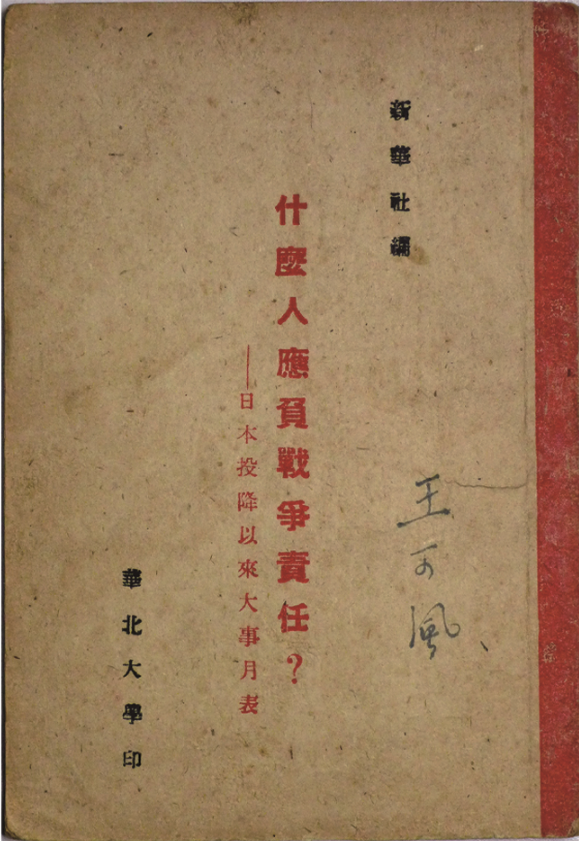 新華社編
什麼人應負戰爭責任？
——日本投降以來大事月表
華北大學印
王可風